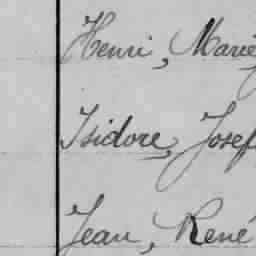 Henri, Marie
Isidore, Josef
Jean, René